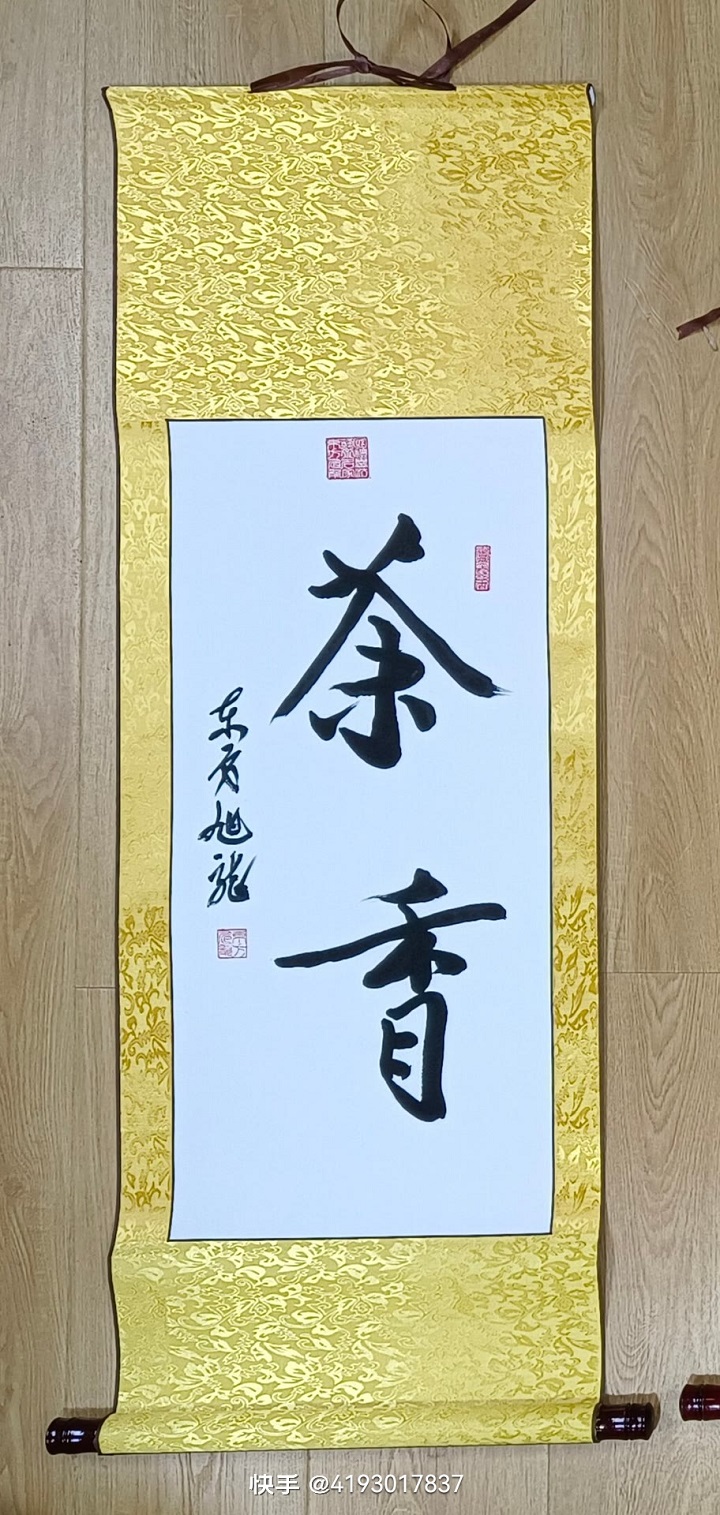 茶香
东方旭龙
快手 @4193017837